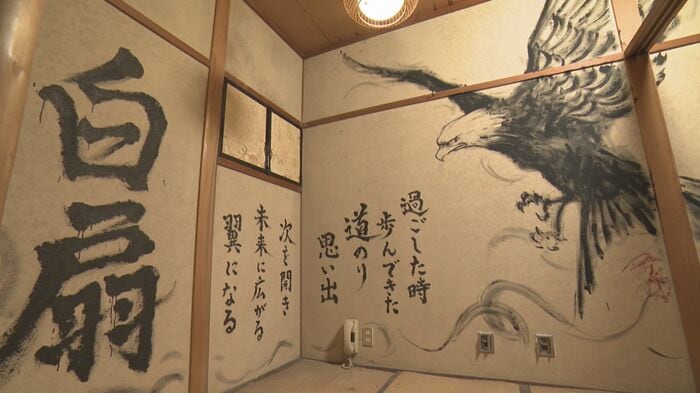 白扇
過ごした時
歩んできた
道のり
思い出
次を開き
未来に広がる
翼になる